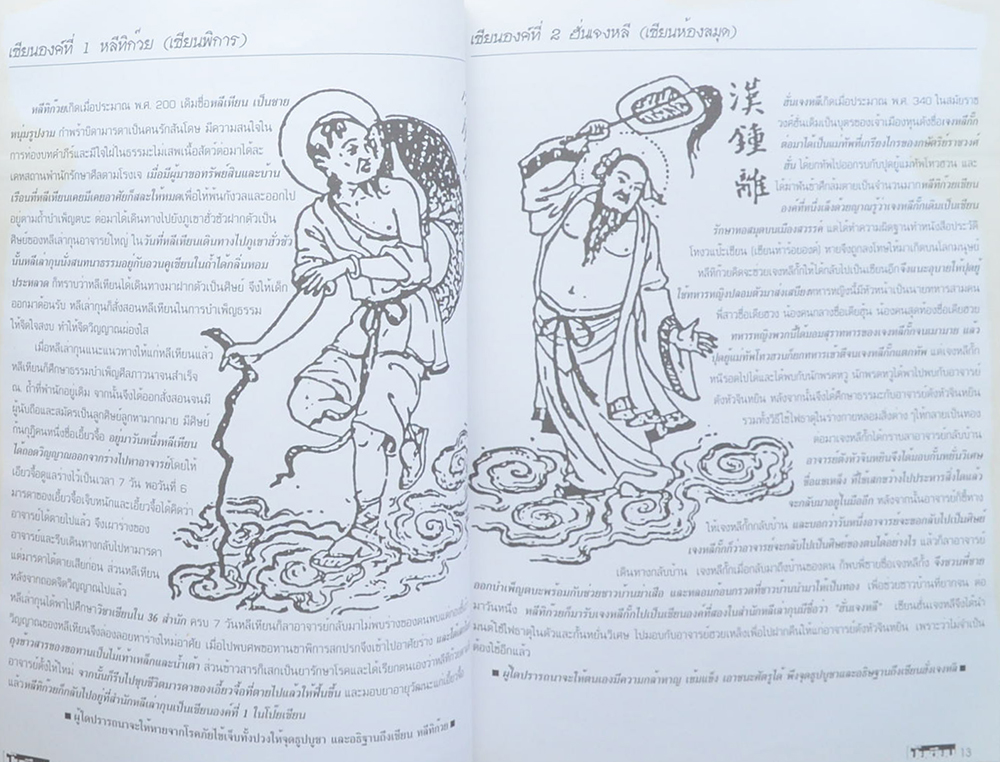 เซียนองค์ที่ 1 หลีทิก๊วย (เซียนพิการ)
หลีทิก๊วยเกิดเมื่อประมาณ พ.ศ. 200 เดิมชื่อหลีเทียน เป็นชาย
หนุ่มรูปงาม กำพร้าบิดามารดาเป็นคนรักสันโดษ มีความสนใจใน
การท่องบทคำภีร์และมีใจใฝ่ในธรรมะไม่เสพเนื้อสัตว์ต่อมาได้ละ
เคหสถานพำนักรักษาศีลตามโรงเจ เมื่อมีผู้มาขอทรัพย์สินและบ้าน
เรือนที่หลีเทียนเคยมีเคยอาศัยก็สละให้หมดเพื่อให้พ้นกังวลและออกไป
อยู่ตามถ้ำบำเพ็ญตบะ ต่อมาได้เดินทางไปยังภูเขาฮั่วซัวฝากตัวเป็น
ศิษย์ของหลีเล่ากุนอาจารย์ใหญ่ ในวันที่หลีเทียนเดินทางไปภูเขาฮั่วซัว
นั้นหลีเล่ากุนนั่งสนทนาธรรมอยู่กับอวนคูเซียนในถ้ำได้กลิ่นหอม
ประหลาด ก็ทราบว่าหลีเทียนได้เดินทางมาฝากตัวเป็นศิษย์ จึงให้เด็ก
ออกมาต้อนรับ หลีเล่ากุนก็สั่งสอนหลีเทียนในการบำเพ็ญธรรม
ให้จิตใจสงบ ทำให้จิตวิญญาณผ่องใส
เมื่อหลีเล่ากุนแนะแนวทางให้แก่หลีเทียนแล้ว
หลีเทียนก็ศึกษาธรรมบำเพ็ญศีลภาวนาจนสำเร็จ
ณ. ถ้ำที่พำนักอยู่เดิม จากนั้นจึงได้ออกสั่งสอนจนมี
ผู้นับถือและสมัครเป็นลูกศิษย์ลูกหามากมาย มีศิษย์
ก้นกุฏิคนหนึ่งชื่อเอี้ยวจื้อ อยู่มาวันหนึ่งหลีเทียน
ได้ถอดวิญญาณออกจากร่างไปหาอาจารย์โดยให้
เอี้ยวจื้อดูแลร่างไว้เป็นเวลา 7 วัน พอวันที่ 6
มารดาของเอี้ยวจื้อเจ็บหนักและเอี้ยวจื้อได้คิดว่า
อาจารย์ได้ตายไปแล้ว จึงเผาร่างของ
อาจารย์และรีบเดินทางกลับไปหามารดา
แต่มารดาได้ตายเสียก่อน ส่วนหลีเทียน
หลังจากถอดจิตวิญญาณไปแล้ว
หลีเล่ากุนได้พาไปศึกษาวิชาเซียนใน 36 สำนัก ครบ 7 วันหลีเทียนก็ลาอาจารย์กลับมาไม่พบร่างของตน
วิญญาณของหลีเทียนจึงล่องลอยหาร่างใหม่อาศัย เมื่อไปพบศพขอทานขาพิการสกปรกจึงเข้าไปอาศัยร่าง
ถุงข้าวสารของขอทานเป็นไม้เท้าเหล็กและน้ำเต้า ส่วนข้าวสารก็เสกเป็นยารักษาโรคและได้เรียกตนเองว่าหลีทิก๊วย
อาจารย์ตั้งให้ใหม่ จากนั้นก็รีบไปชุบชีวิตมารดาของเอี้ยวจื้อที่ตายไปแล้วให้ฟื้นขึ้น และมอบยาอายุวัฒนะแก่เอี้ยวจื้อ
แล้วหลีทิก๊วยก็กลับไปอยู่ที่สำนักหลีเล่ากุนเป็นเซียนองค์ที่ 1 ในโป๊ยเซียน
■ ผู้ใดปรารถนาจะให้หายจากโรคภัยไข้เจ็บทั้งปวงให้จุดธูปบูชา และอธิษฐานถึงเซียน หลีทิก๊วย ■
เซียนองค์ที่ 2 ฮั่นเจงหลี (เซียนห้องสมุด)
漢鍾離
ฮั่นเจงหลีเกิดเมื่อประมาณ พ.ศ. 340 ในสมัยราช
วงศ์ฮั่นเดิมเป็นบุตรของเจ้าเมืองหุนตังชื่อเจงหลีกั๊ก
ต่อมาได้เป็นแม่ทัพที่เกรียงไกรของกษัตริย์ราชวงศ์
ฮั่น ได้ยกทัพไปออกรบกับปุดยู่แม่ทัพโทวฮวน และ
ได้ฆ่าฟันข้าศึกล้มตายเป็นจำนวนมากหลีทิก๊วยเซียน
องค์ที่หนึ่งเล็งด้วยญาณรู้ว่าเจงหลีกั๊กเดิมเป็นเซียน
รักษาหอสมุดบนเมืองสวรรค์ แต่ได้ทำความผิดฐานทำหนังสือประวัติ
โหงวแป๊ะเซียน (เซียนห้าร้อยองค์) หายจึงถูกลงโทษให้มาเกิดบนโลกมนุษย์
หลีทิก๊วยคิดจะช่วยเจงหลีกั๊กให้ได้กลับไปเป็นเซียนอีกจึงแนะอุบายให้ปุดยู่
ใช้ทหารหญิงปลอมตัวมาส่งเสบียงทหารหญิงนี้มีหัวหน้าเป็นนายทหารสามคน
พี่สาวชื่อเตียฮวง น้องคนกลางชื่อเตียฮุ่น น้องคนสุดท้องชื่อเตียฮวย
ทหารหญิงพวกนี้ได้มอมสุราทหารของเจงหลีกั๊กจนเมามาย แล้ว
ปุดยู่แม่ทัพโทวฮวนก็ยกทหารเข้าตีจนเจงหลีกั๊กแตกทัพ แต่เจงหลีกั๊ก
หนีรอดไปได้และได้พบกับนักพรตหวู นักพรตหวูได้พาไปพบกับอาจารย์
ตังหัวจินหยิน หลังจากนั้นก็ได้ศึกษาธรรมะกับอาจารย์ตังหัวจินหยิน
รวมทั้งวิธีใช้ไฟธาตุในร่างกายหลอมสิ่งต่าง ๆให้กลายเป็นทอง
ต่อมาเจงหลีกั๊กได้กราบลาอาจารย์กลับบ้าน
อาจารย์ตังหัวจินหยินจึงได้มอบกั้นหยั่นวิเศษ
ที่ใช้เสกขว้างไปประหารสิ่งใดแล้ว
จะกลับมาอยู่ในมืออีก หลังจากนั้นอาจารย์ก็ชี้ทาง
ให้เจงหลีกั๊กกลับบ้าน และบอกว่าวันหนึ่งอาจารย์จะขอกลับไปเป็นศิษย์
เจงหลีกั๊กก็ว่าอาจารย์จะกลับไปเป็นศิษย์ของตนได้อย่างไร แล้วก็ลาอาจารย์
เดินทางกลับบ้าน เจงหลีกั๊กเมื่อกลับมาถึงบ้านของตน ก็พบพี่ชายชื่อเจงหลีกั้ง จึงชวนพี่ชาย
ออกบำเพ็ญตบะพร้อมกับช่วยชาวบ้านฆ่าเสือ และหลอมก้อนกรวดที่ชาวบ้านนำมาให้เป็นทอง เพื่อช่วยชาวบ้านที่ยากจน ต่อ
มาวันหนึ่ง หลีทิก๊วยก็มารับเจงหลีกั๊กไปเป็นเซียนองค์ที่สองในสำนักหลีเล่ากุนมีชื่อว่า "ฮั่นเจงหลี" เซียนฮั่นเจงหลีจึงได้นำ
มนต์ใช้ไฟธาตุในตัวและกั้นหยั่นวิเศษ ไปมอบกับอาจารย์ฮวยเหล็งเพื่อไปฝากคืนให้แก่อาจารย์ตังหัวจินหยิน เพราะว่าไม่จำเป็น
ต้องใช้อีกแล้ว
■ ผู้ใดปรารถนาจะให้ตนเองมีความกล้าหาญ เข้มแข็ง เอาชนะศัตรูได้ พึงจุดธูปบูชาและอธิษฐานถึงเซียนฮั่งเจงหลี ■
13